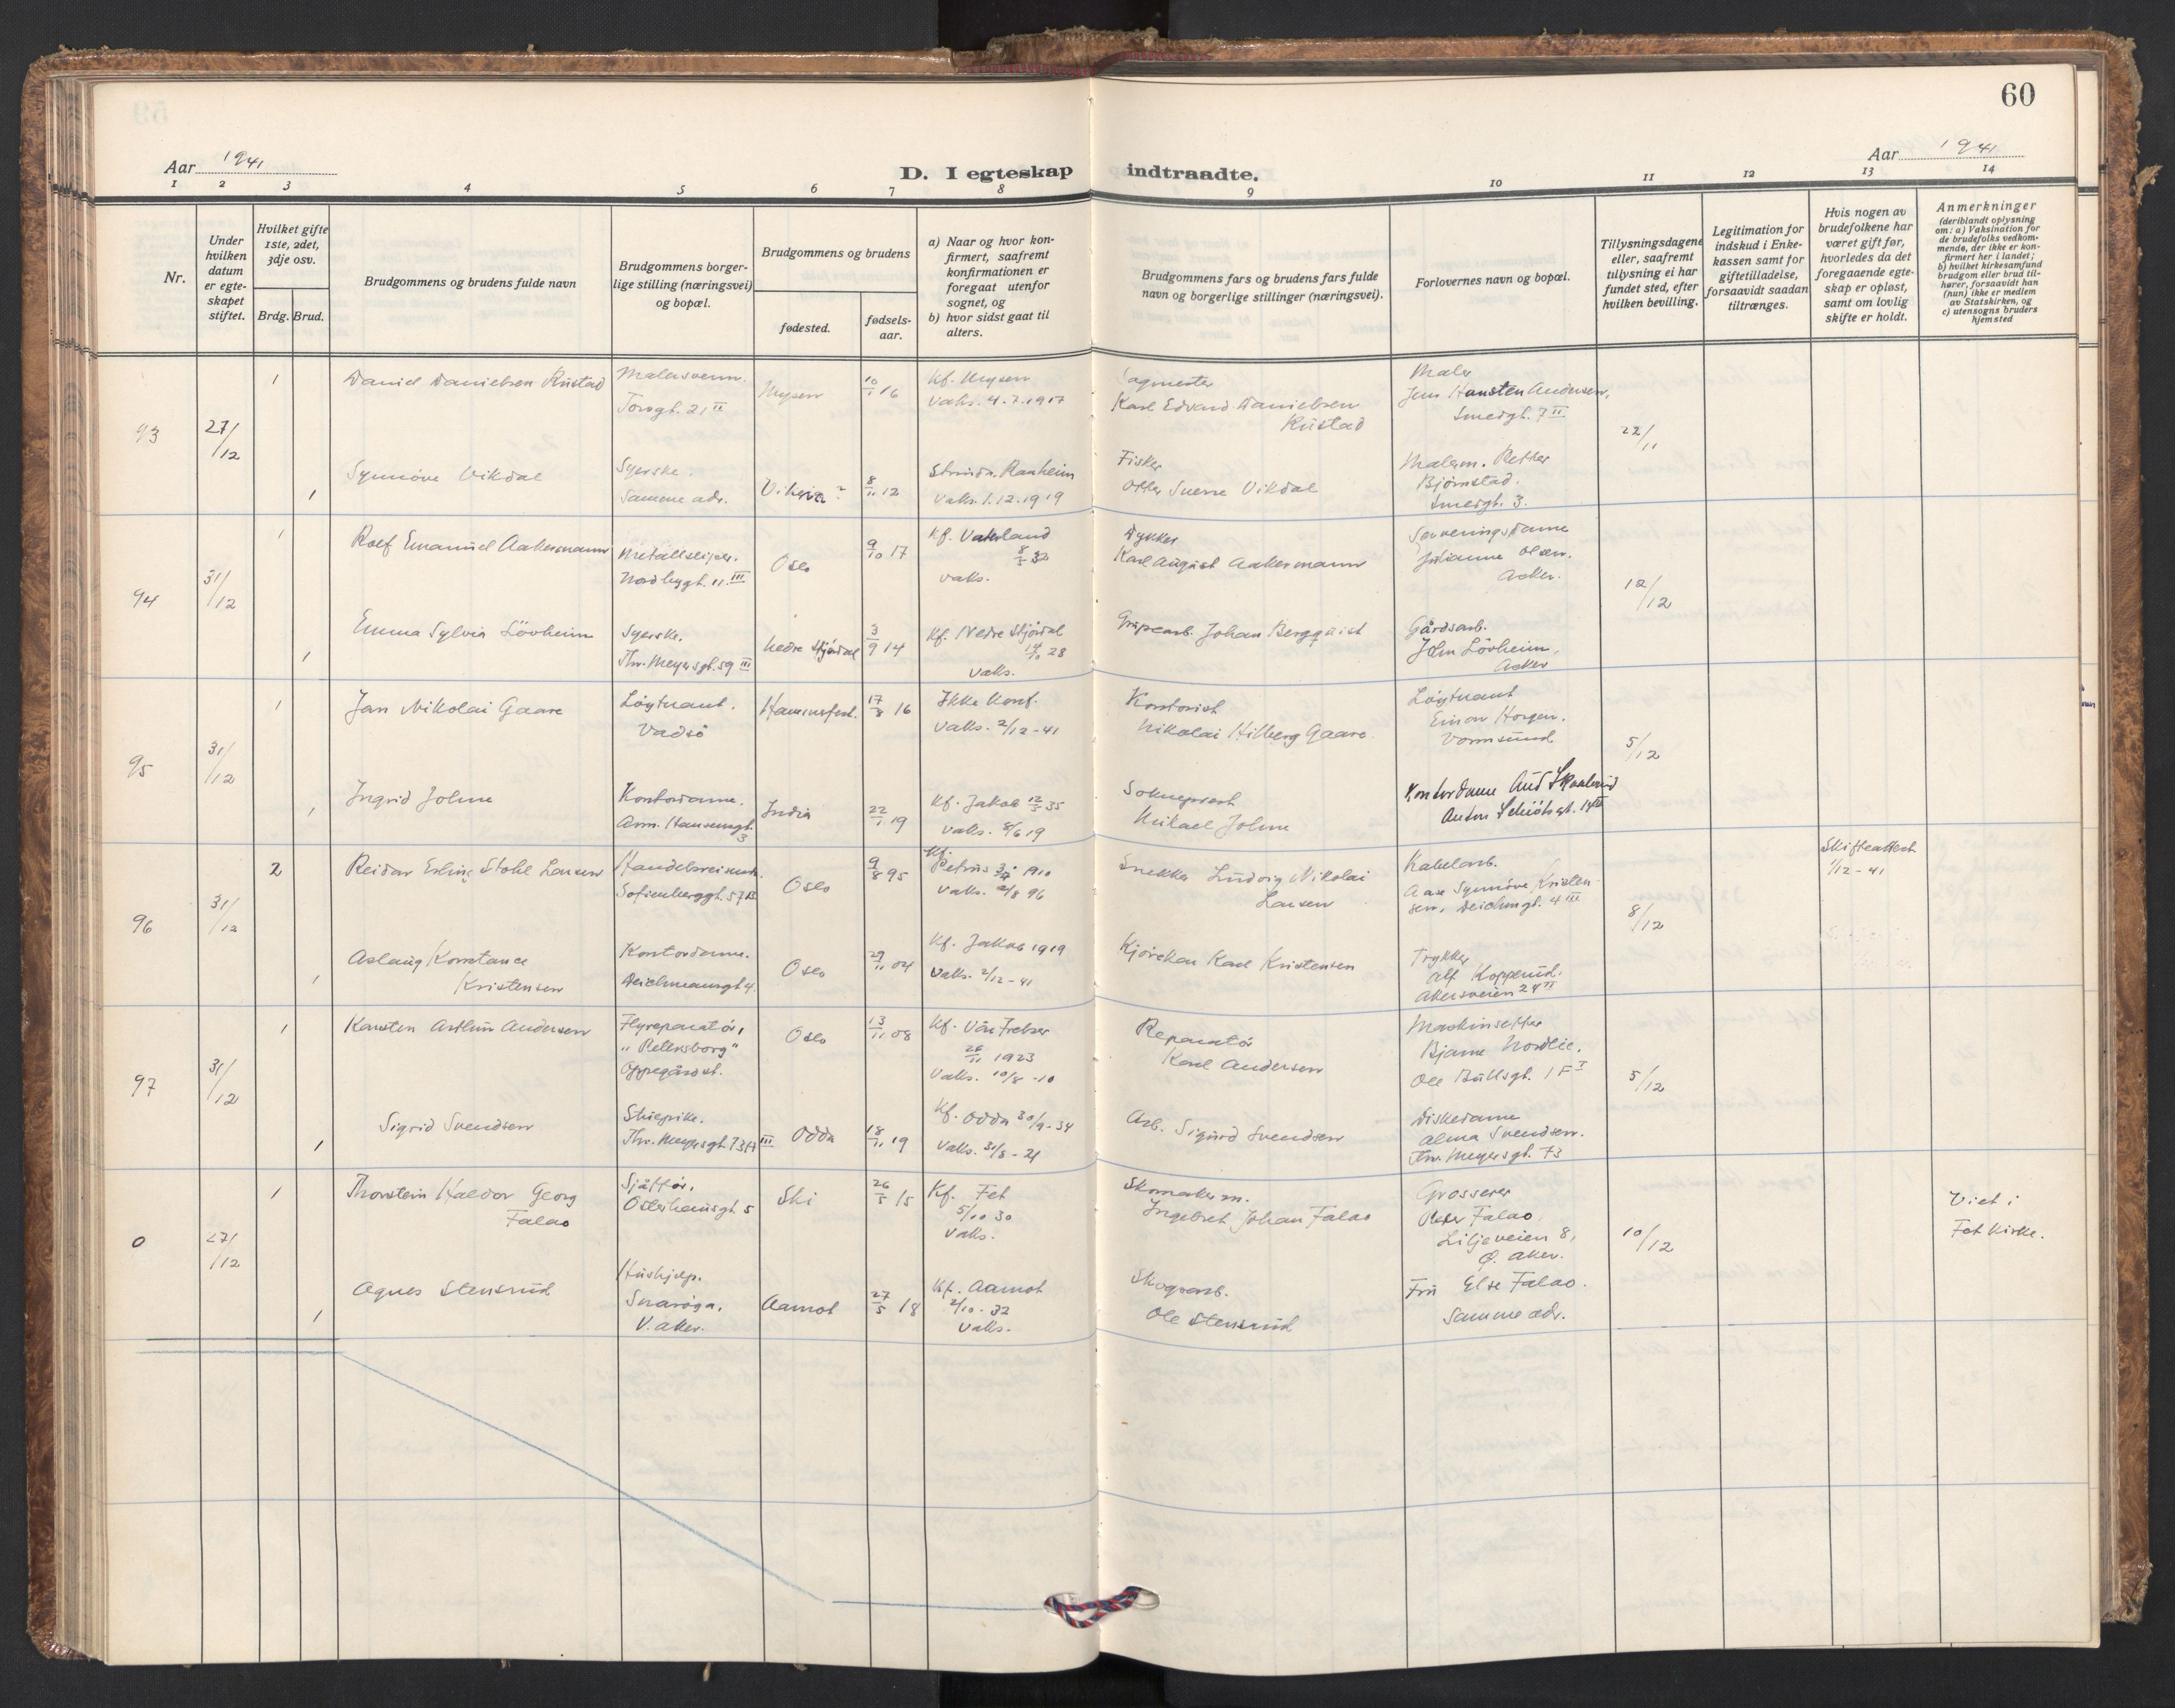 60
Aar 1941
D. I egteskap indtraadte.
Aar 1941
1 2 3 4 5 6 7 8 9 10 11 12 13 14
Nr.
Under
hvilken
datum
er egte-
skapet
stiftet.
Hvilket gifte
1ste, 2det,
3dje osv.
Brdg. Brud.
Brudgommens og brudens fulde navn
Brudgommens borger-
lige stilling (næringsvei)
og bopæl.
Brudgommens og brudens
fødested.
fødsels-
aar.
a) Naar og hvor kon-
firmert, saafremt
konfirmationen er
foregaat utenfor
sognet, og
b) hvor sidst gaat til
alters.
Brudgommens fars og brudens fars fulde
navn og borgerlige stillinger (næringsvei).
Forlovernes navn og bopæl.
Tillysningsdagene
eller, saafremt
tillysning ei har
fundet sted, efter
hvilken bevilling.
Legitimation for
indskud i Enke-
kassen samt for
giftetilladelse,
forsaavidt saadan
tiltrænges.
Hvis nogen av
brudefolkene har
været gift før,
hvorledes da det
foregaaende egte-
skap er opløst,
samt om lovlig
skifte er holdt.
Anmerkninger
(deriblandt oplysning
om: a) Vaksination for
de brudefolks vedkom-
mende, der ikke er kon-
firmert her i landet;
b) hvilket kirkesamfund
brudgom eller brud til-
hører, forsaavidt han
(hun) ikke er medlem
av Statskirken, og
c) utensogns bruders
hjemsted
93
27/12
1
Daniel Danielsen Rustad
Malersvenn.
Torvgt. 21 II
Mysen
10/1 16
Kf. Mysen
Vaks. 4.7.1917
Sagmester
Karl Edvard Danielsen
Rustad
Maler
Jens Hansten Andersen,
Smedgt. 7 II
22/11
1
Synnöve Vikdal
Syerske.
Samme adr.
8/11 12
Strinda, Ranheim
Vaks. 1.12.1919
Fisker
Otter Sverre Vikdal
Malerm. Petter
Björnstad.
Smedgt. 3.
94
31/12
1
Rolf Emanuel Aakermann
Metallsliper.
Nordbygt. 11 III
Oslo
9/10 17
Kf. Vaterland
8/5 32
vaks.
Dykker
Karl August Aakermann
Serveringsdame
Julianne Olsen.
Aker.
12/12
1
Emma Sylvia Lövheim
Syerske.
Thv. Meyersgt. 59 III
Nedre Stjördal
3/9 14
Kf. Nedre Stjördal
14/10 28
vaks.
Grubearb. Johan Bergquist
Gårdsarb.
John Lövheim,
Aker
95
31/12
1
Jan Nikolai Gaare
Löytnant.
Vadsö
Hammerfest.
17/8 16
Ikke konf.
Vaks. 2/12-41
Kontorist
Nikolai Hilberg Gaare.
Löytnant
Einar Horgen.
Vormsund
5/12
1
Ingrid Johne
Kontordame.
Arm. Hansensgt.
3
India
22/1 19
Kf. Jakob 12/5 35
Vaks. 8/6 19
Sokneprest
Mikael Johne
Kontordame Aud Skaalerud
Anton Schiötsgt. 14 IV
96
31/12
2
Reidar Erling Stohl Larsen
Handelsreisende.
Sofienberggt. 57 B.
Oslo
9/8 95
Kf.
Petrus 3/4 1910
Vaks. 2/8 96
Snekker Ludvig Nikolai
Larsen
Kabelarb.
Aase Synnöve Kristen-
sen, Deichmgt. 4 III
8/12
Skifteattest
1/12-41
1
Aslaug Konstance
Kristensen
Kontordame.
Deichmannsgt 4.
Oslo
29/11 04
Kf. Jakob 1919
Vaks. 2/12-41
Kjörekar Karl Kristensen
Trykker
Alf Kopperud.
Akersveien 24 II
97
31/12
1
Karsten Arthur Andersen
Flyreparatör,
"Petersborg"
Oppegård st.
Oslo
13/11 08
Kf. Vår Frelser
25/11 1923
Vaks. 10/8-10
Reparatör
Karl Andersen
Maskinsetter
Bjarne Nordlie.
Ole Bullsgt. 1 F I
5/12
1
Sigrid Svendsen
Skiepike.
Thv. Meyersgt. 73 III
Odda
18/11 19
Kf. Odda 30/9-34
Vaks. 31/8-21
Arb. Sigurd Svendsen
Diskedame
Alma Svendsen.
Thv. Meyersgt. 73
0
27/12
1
Thorstein Haldor Georg
Falao
Sjåför.
Osterhausgt 5
Ski
26/5 15
Kf. Fet
5/10 30
Vaks.
Skomakerm.
Ingebret Johan Falao
Grosserer
Peder Falao.
Liljeveien 8,
Ø. Aker.
10/12
Viet i
Fet Kirke.
1
Agnes Stensrud
Hushjelp.
Snaröya.
V. Aker.
Aamot
27/5 18
Kf. Aamot
2/10-32
Vaks.
Skogsarb.
Ole Stensrud
Fru Else Falao.
Samme adr.